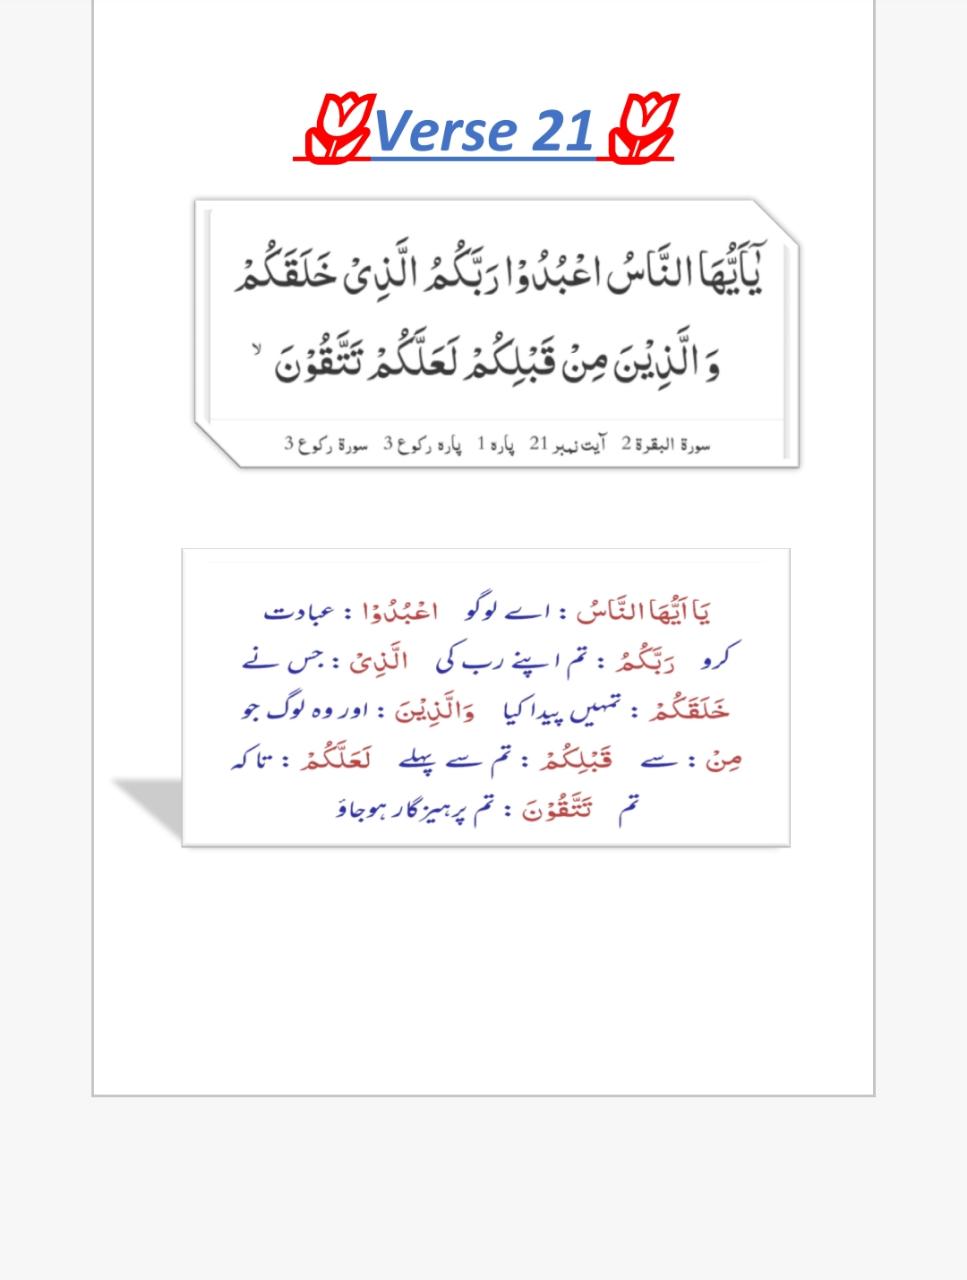 Verse 21
يٰۤاَيُّهَا النَّاسُ اعْبُدُوْا رَبَّكُمُ الَّذِىْ خَلَقَكُمْ
وَ الَّذِيْنَ مِنْ قَبْلِكُمْ لَعَلَّكُمْ تَتَّقُوْنَ ۙ
سورۃ البقرۃ 2 آیت نمبر 21 پارہ 1 پارہ رکوع 3 سورۃ رکوع 3
يَا اَيُّهَا النَّاسُ : اے لوگو اعْبُدُوْا : عبادت
کرو رَبَّكُمُ : تم اپنے رب کی الَّذِىْ : جس نے
خَلَقَكُمْ : تمہیں پیدا کیا وَالَّذِيْنَ : اور وہ لوگ جو
مِنْ : سے قَبْلِكُمْ : تم سے پہلے لَعَلَّكُمْ : تا کہ
تم تَتَّقُوْنَ : تم پرہیزگار ہوجاؤ